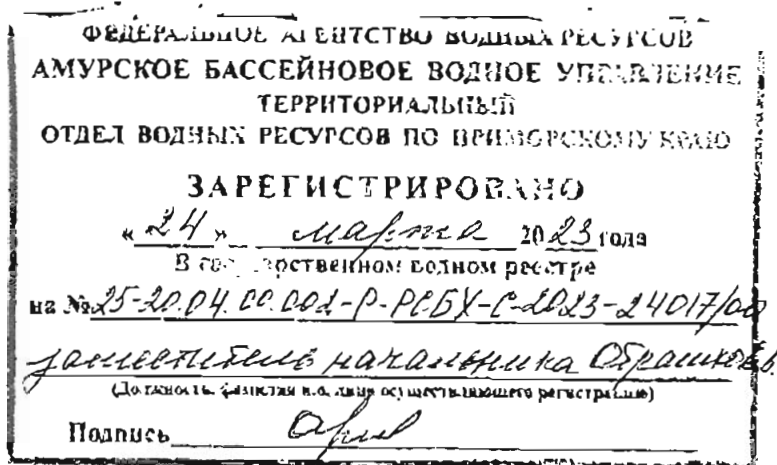 ФЕДЕРАЛЬНОЕ АГЕНТСТВО ВОДНЫХ РЕСУРСОВ
АМУРСКОЕ БАССЕЙНОВОЕ ВОДНОЕ УПРАВЛЕНИЕ
ТЕРРИТОРИАЛЬНЫЙ
ОТДЕЛ ВОДНЫХ РЕСУРСОВ ПО ПРИМОРСКОМУ КРАЮ
ЗАРЕГИСТРИРОВАНО
«24» марта 2023 года
В государственном водном реестре
на № 25-20.04.00.002-Р-РСБХ-С-2023-24017/00
заместитель начальника
(Должность, фамилия и.о. лица осуществляющего регистрацию)
Подпись